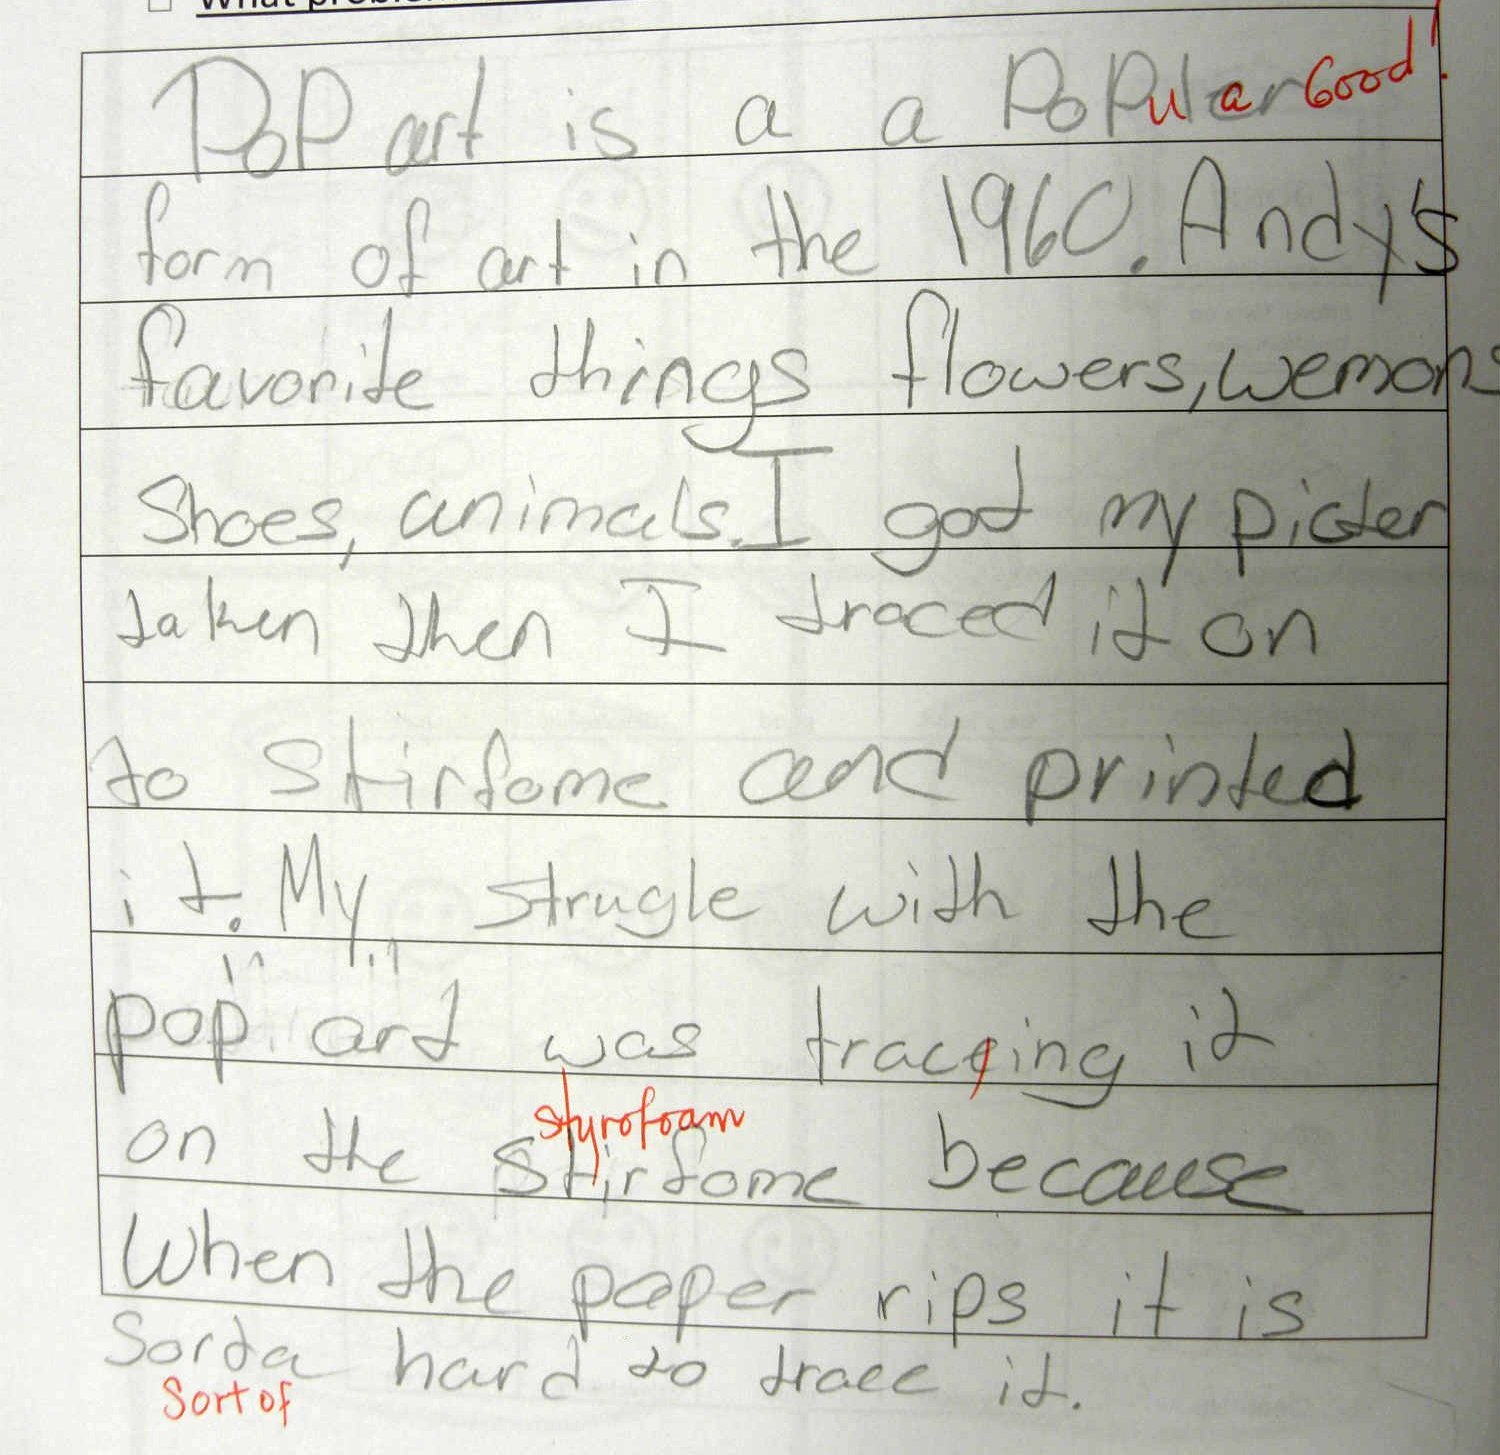 What proble
Pop art is a a Popular Good!
form of art in the 1960. Andy's
favorite things flowers, wemons
Shoes, animals. I got my picter
taken then I traced it on
to stirfome and printed
it. My strugle with the
pop art was traceing it
styrofoam
on the stirfome because
When the paper rips it is
Sorta hard to trace it.
Sort of